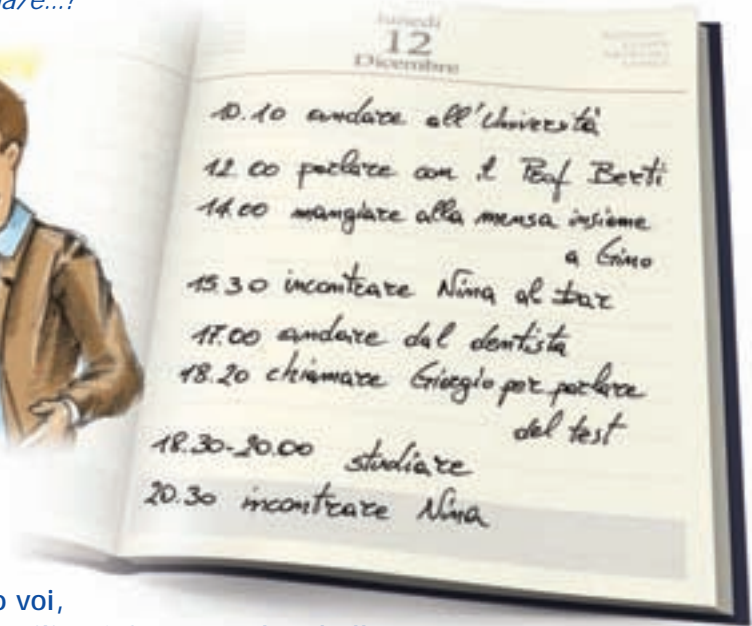 are...?
lunedì
12
Dicembre
10.10 andare all'Università
12.00 parlare con il Prof. Berti
14.00 mangiare alla mensa insieme
a Gino
15.30 incontrare Nina al bar
17.00 andare dal dentista
18.20 chiamare Giorgio per parlare
del test
18.30-20.00 studiare
20.30 incontrare Nina
voi,